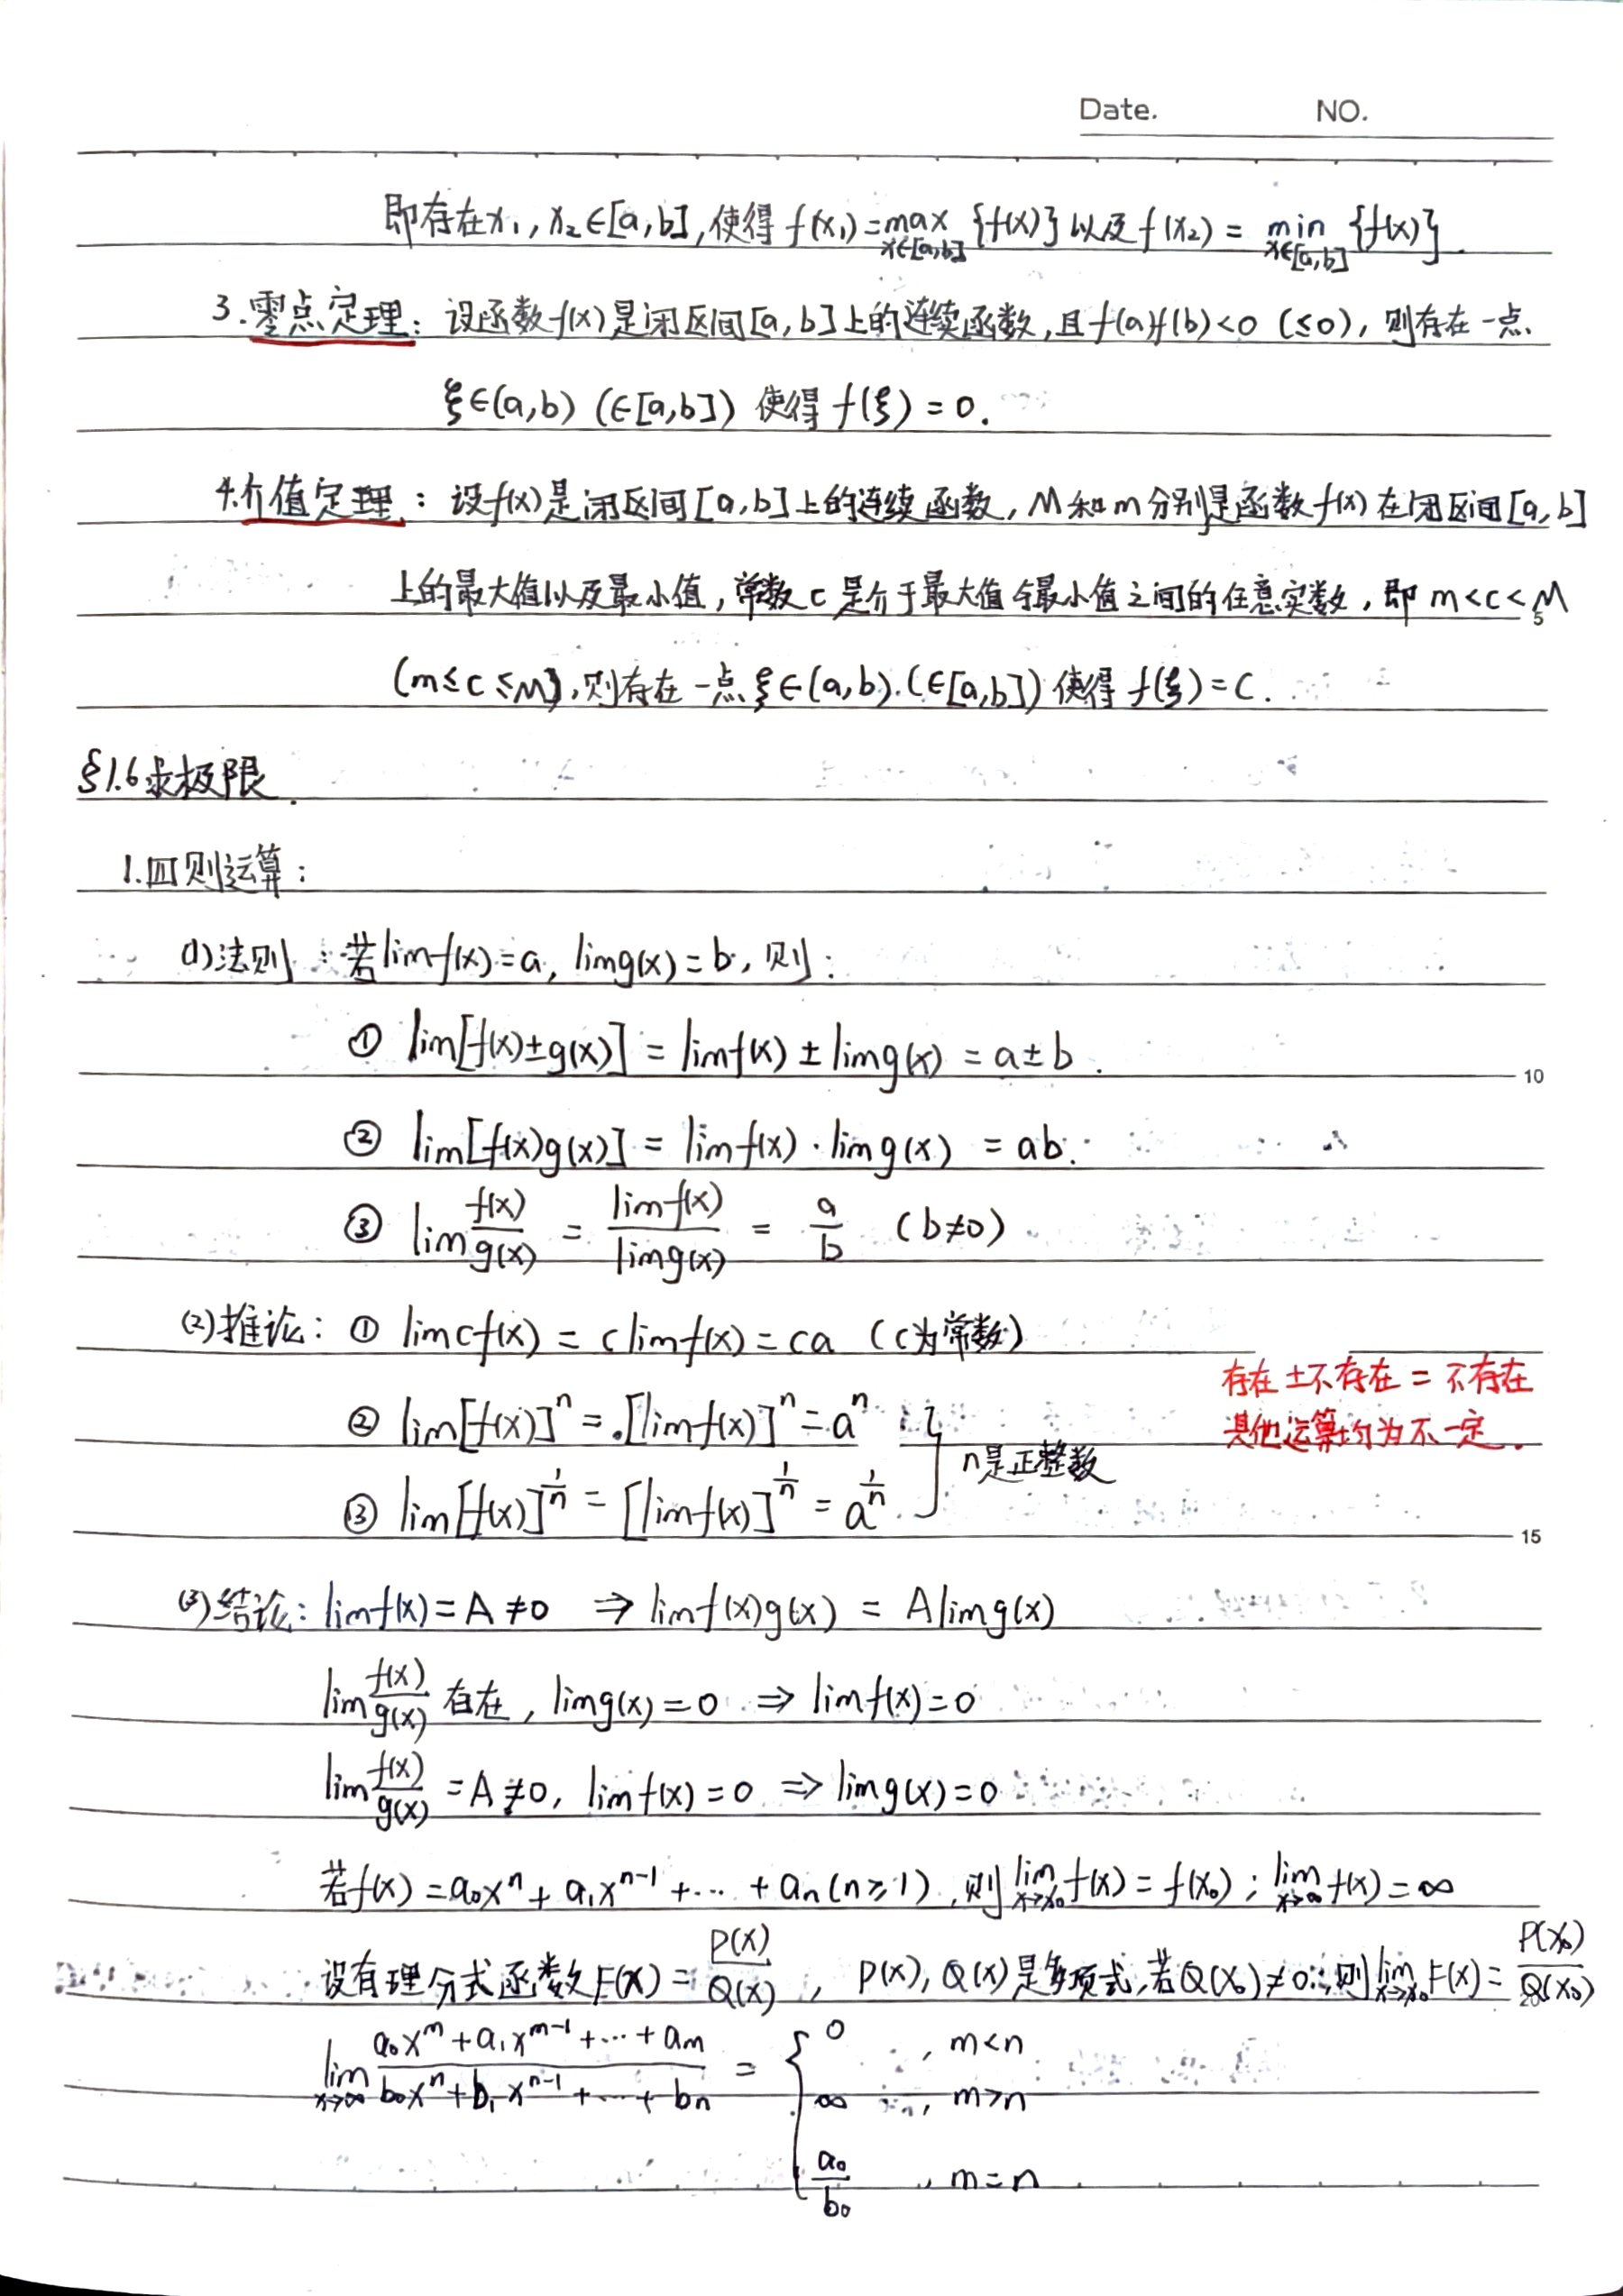 Date. NO.
即存在x₁,x₂∈[a,b],使得f(x₁)=max_{x∈[a,b]}{f(x)}以及f(x₂)=min_{x∈[a,b]}{f(x)}.
3.零点定理:设函数f(x)是闭区间[a,b]上的连续函数,且f(a)f(b)<0(≤0),则存在一点
ξ∈(a,b)(∈[a,b])使得f(ξ)=0.
4.介值定理:设f(x)是闭区间[a,b]上的连续函数,M和m分别是函数f(x)在闭区间[a,b]
上的最大值以及最小值,常数c是介于最大值与最小值之间的任意实数,即m<c<M
5
(m≤c≤M),则存在一点ξ∈(a,b)(∈[a,b])使得f(ξ)=C.
§1.6求极限
1.四则运算:
(1)法则:若limf(x)=a,limg(x)=b,则:
① lim[f(x)±g(x)]=limf(x)±limg(x)=a±b.
10
② lim[f(x)g(x)]=limf(x)·limg(x)=ab.
③ lim f(x)/g(x) = limf(x)/limg(x) = a/b (b≠0)
(2)推论:① limcf(x)=climf(x)=ca(c为常数)
存在±不存在=不存在
② lim[f(x)]ⁿ=[limf(x)]ⁿ=aⁿ
其他运算均为不一定.
n是正整数
③ lim[f(x)]^{1/n}=[limf(x)]^{1/n}=a^{1/n}
15
(3)结论:limf(x)=A≠0 ⇒ limf(x)g(x)=Alimg(x)
lim f(x)/g(x) 存在,limg(x)=0 ⇒ limf(x)=0
lim f(x)/g(x) =A≠0,limf(x)=0 ⇒ limg(x)=0
若f(x)=a₀xⁿ+a₁xⁿ⁻¹+…+aₙ(n≥1),则lim_{x→x₀}f(x)=f(x₀);lim_{x→∞}f(x)=∞
设有理分式函数F(x)=P(x)/Q(x),P(x),Q(x)是多项式,若Q(x₀)≠0,则lim_{x→x₀}F(x)=P(x₀)/Q(x₀)
20
lim_{x→∞} (a₀xᵐ+a₁xᵐ⁻¹+…+aₘ)/(b₀xⁿ+b₁xⁿ⁻¹+…+bₙ) = { 0 , m<n
∞ , m>n
a₀/b₀ , m=n